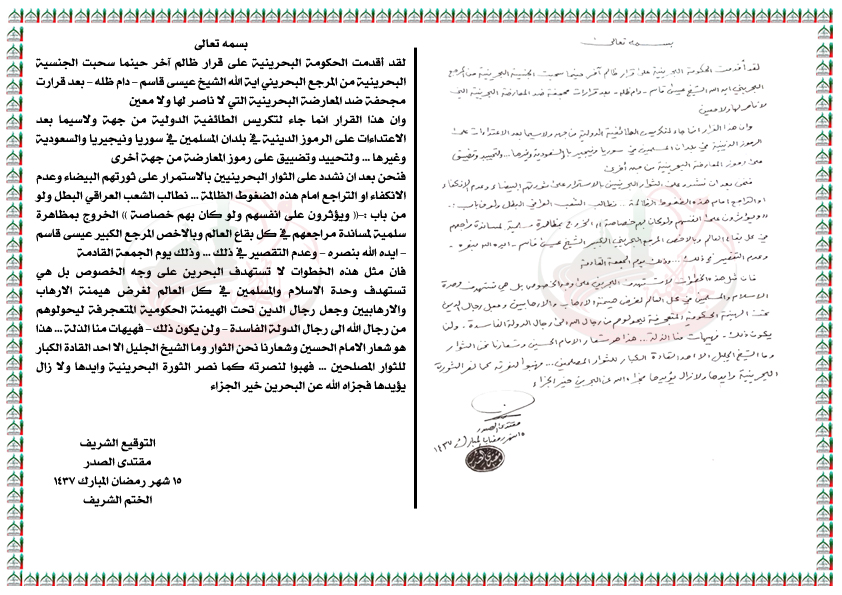 بسمه تعالى
لقد أقدمت الحكومة البحرينية على قرار ظالم آخر حينما سحبت الجنسية
البحرينية من المرجع البحريني اية الله الشيخ عيسى قاسم – دام ظله – بعد قرارت
مجحفة ضد المعارضة البحرينية التي لا ناصر لها ولا معين
وان هذا القرار انما جاء لتكريس الطائفية الدولية من جهة ولاسيما بعد
الاعتداءات على الرموز الدينية في بلدان المسلمين في سوريا ونيجيريا والسعودية
وغيرها ... ولتحييد وتضييق على رموز المعارضة من جهة اخرى
فنحن بعد ان نشدد على الثوار البحرينيين بالاستمرار على ثورتهم البيضاء وعدم
الانكفاء او التراجع امام هذه الضغوط الظالمة ... نطالب الشعب العراقي البطل ولو
من باب :-(( ويؤثرون على انفسهم ولو كان بهم خصاصة )) الخروج بمظاهرة
سلمية لمساندة مراجعهم في كل بقاع العالم وبالاخص المرجع الكبير عيسى قاسم
– ايده الله بنصره – وعدم التقصير في ذلك ... وذلك يوم الجمعة القادمة
فان مثل هذه الخطوات لا تستهدف البحرين على وجه الخصوص بل هي
تستهدف وحدة الاسلام والمسلمين في كل العالم لغرض هيمنة الارهاب
والارهابيين وجعل رجال الدين تحت الهيمنة الحكومية المتعجرفة ليحولوهم
من رجال الله الى رجال الدولة الفاسدة – ولن يكون ذلك – فهيهات منا الذلة ... هذا
هو شعار الامام الحسين وشعارنا نحن الثوار وما الشيخ الجليل الا احد القادة الكبار
للثوار المصلحين ... فهبوا لنصرته كما نصر الثورة البحرينية وايدها ولا زال
يؤيدها فجزاه الله عن البحرين خير الجزاء
التوقيع الشريف
مقتدى الصدر
١٥ شهر رمضان المبارك ١٤٣٧
الختم الشريف
بسمه تعالى
لقد أقدمت الحكومة البحرينية على قرار ظالم آخر حينما سحبت الجنسية البحرينية من المرجع
البحريني اية الله الشيخ عيسى قاسم - دام ظله - بعد قرارات مجحفة ضد المعارضة البحرينية التي
لا ناصر لها ولا معين
وان هذا القرار انما جاء لتكريس الطائفية الدولية من جهة ولاسيما بعد الاعتداءات على
الرموز الدينية في بلدان المسلمين في سوريا ونيجيريا والسعودية وغيرها ... ولتحييد وتضييق
على رموز المعارضة البحرينية من جهة اخرى
فنحن بعد ان نشدد على الثوار البحرينيين بالاستمرار على ثورتهم البيضاء وعدم الانكفاء
او التراجع امام هذه الضغوط الظالمة .. نطالب الشعب العراقي البطل ولو من باب :-
(( ويؤثرون على انفسهم ولو كان بهم خصاصة )) الخروج بمظاهرة سلمية لمساندة مراجعهم
في كل بقاع العالم وبالاخص المرجع البحريني الكبير الشيخ عيسى قاسم - ايده الله بنصره -
وعدم التقصير في ذلك ... وذلك يوم الجمعة القادمة
فان مثل هذه الخطوات لا تستهدف البحرين على وجه الخصوص بل هي تستهدف وحدة
الاسلام والمسلمين في كل العالم لغرض هيمنة الارهاب والارهابيين وجعل رجال الدين
تحت الهيمنة الحكومية المتعجرفة ليحولوهم من رجال الله الى رجال الدولة الفاسدة - ولن
يكون ذلك - فهيهات منا الذلة ... هذا هو شعار الامام الحسين وشعارنا نحن الثوار
وما الشيخ الجليل الا احد القادة الكبار للثوار المصلحين .. فهبوا لنصرته كما نصر الثورة
البحرينية وايدها ولازال يؤيدها فجزاه الله عن البحرين خير الجزاء
مقتدى الصدر
١٥ شهر رمضان المبارك ١٤٣٧